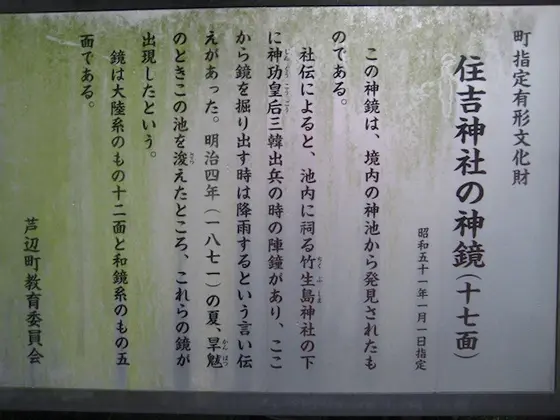 町指定有形文化財
住吉神社の神鏡（十七面）
昭和五十一年一月一日指定
この神鏡は、境内の神池から発見されたも
のである。
社伝によると、池内に祠る竹生島神社の下
に神功皇后三韓出兵の時の陣鐘があり、ここ
から鏡を掘り出す時は降雨するという言い伝
えがあった。明治四年（一八七一）の夏、旱魃
のときこの池を浚えたところ、これらの鏡が
出現したという。
鏡は大陸系のもの十二面と和鏡系のもの五
面である。
芦辺町教育委員会